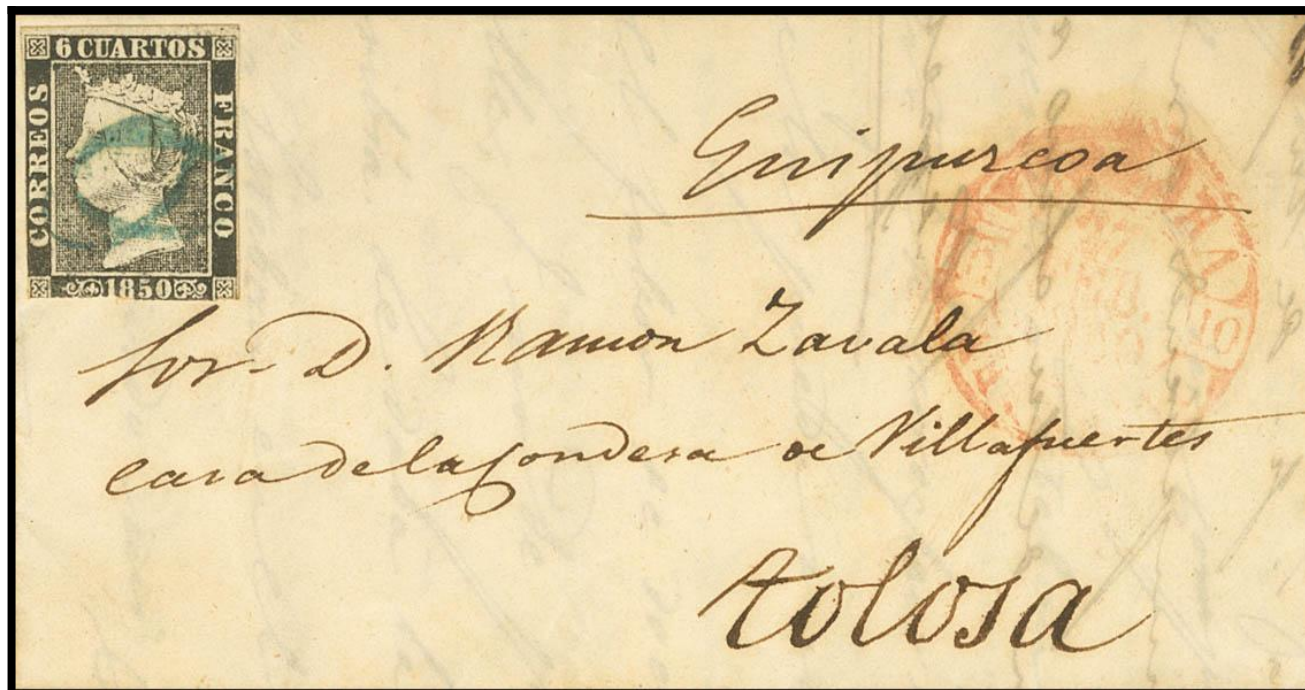 6 CUARTOS
CORREOS
FRANCO
1850
Guipuzcoa
Sor. D. Ramon Zavala
casa de la Condesa de Villafuertes
tolosa